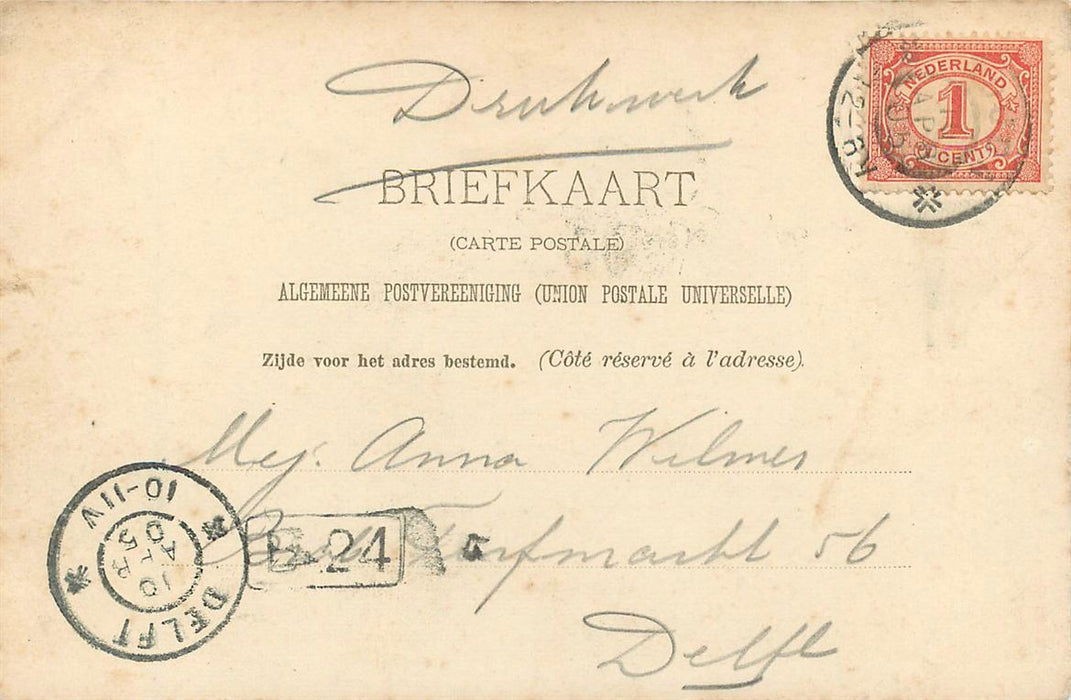 Drukwerk
NEDERLAND
1
CENT
12-6N
BRIEFKAART
(CARTE POSTALE)
ALGEMEENE POSTVEREENIGING (UNION POSTALE UNIVERSELLE)
Zijde voor het adres bestemd. (Côté réservé à l'adresse).
Mej. Anna Wilmer
Turfmarkt 56
Delft
DELFT
10 APR 05
10-11V
24